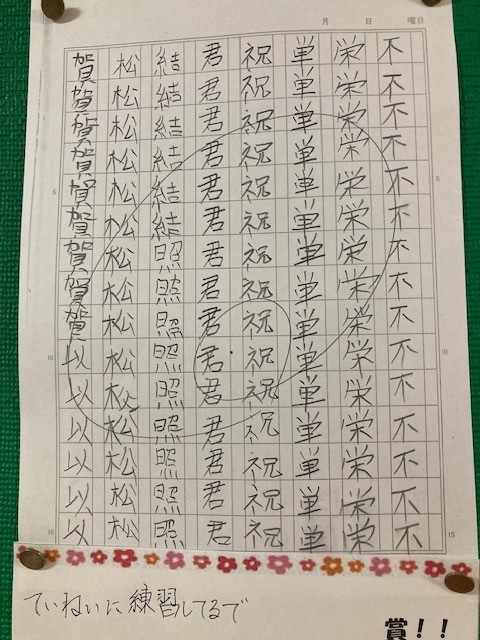 月 日 曜日
不不不不不不不不不不不不不不不
栄栄栄栄栄栄栄栄栄栄栄栄栄栄栄
単単単単単単単単単単単単単単単
祝祝祝祝祝祝祝祝祝祝祝祝祝祝祝
君君君君君君君君君君君君君君君
結結結結結結照照照照照照照照照
松松松松松松松松松松松松松松松
賀賀賀賀賀賀賀賀賀以以以以以以
5
10
15
5
10
15
ていねいに練習してるで
賞!!